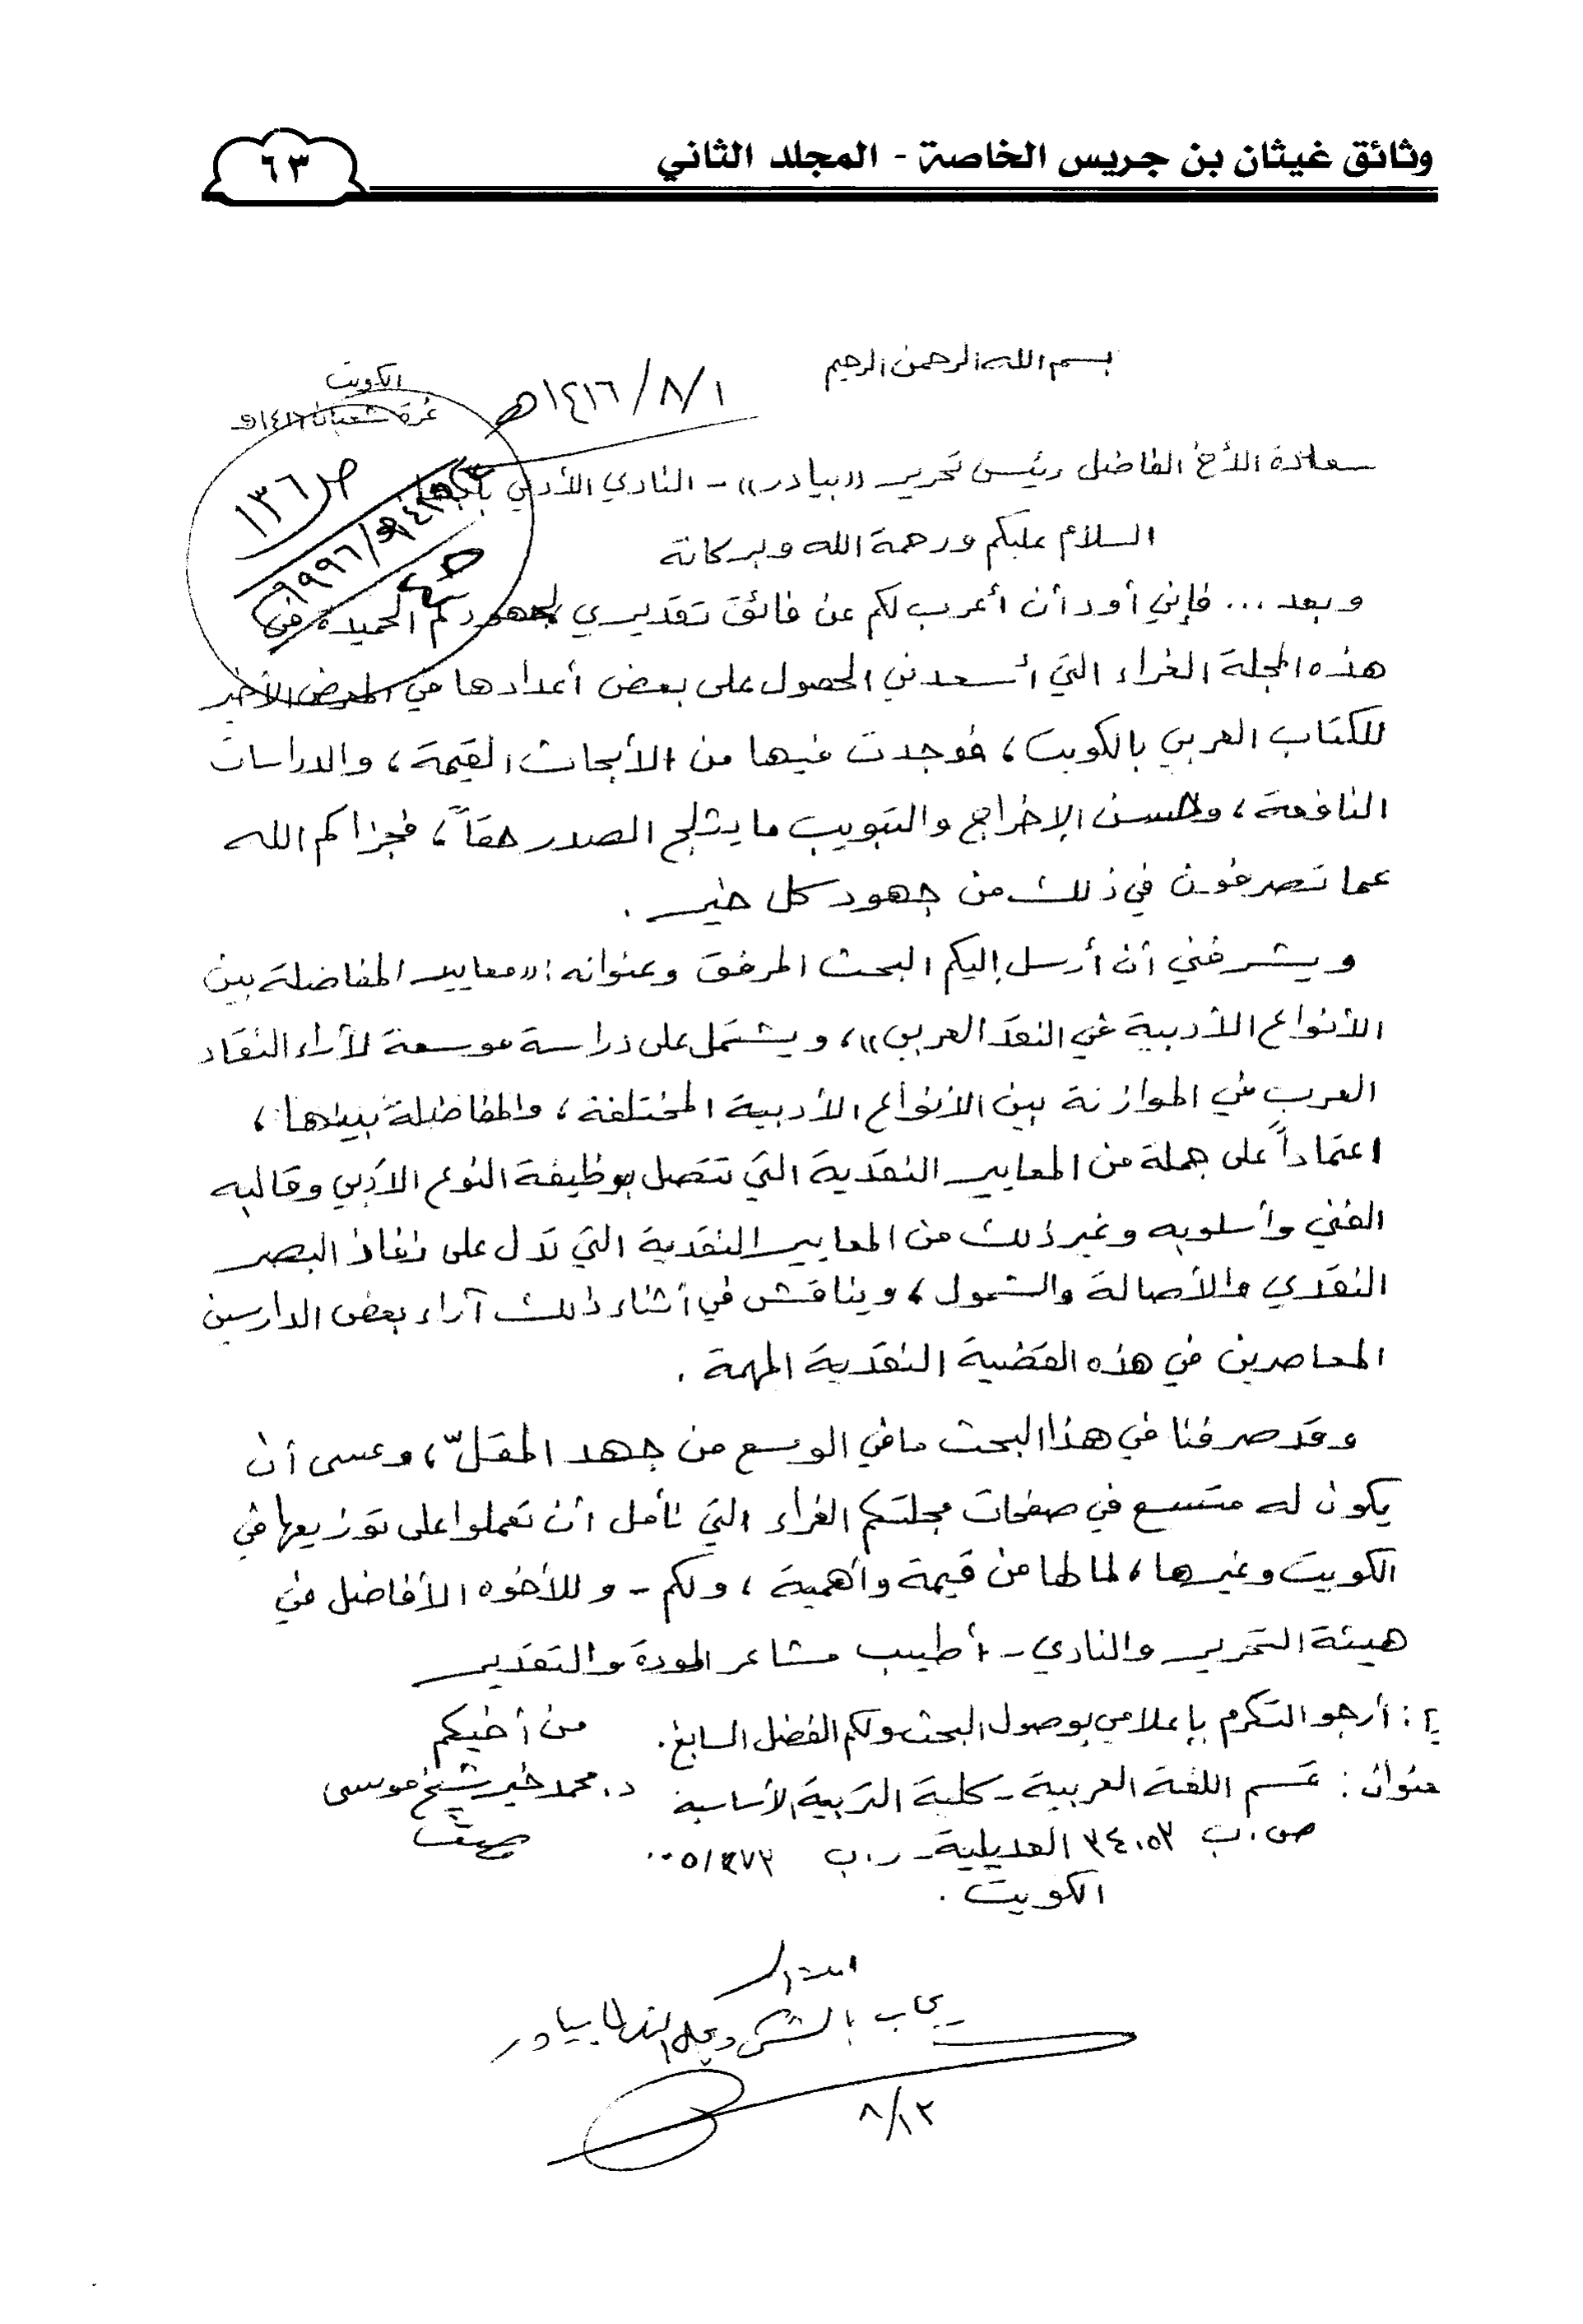 وثائق غيثان بن جريس الخاصة - المجلد الثاني
٦٣
بسم الله الرحمن الرحيم
الكويت
غرة شعبان ١٤١٦هـ
١/٨/١٤١٦هـ
ص ١٣٦
سعادة الأخ الفاضل رئيس تحرير «بيادر» - النادي الأدبي بأبها
السلام عليكم ورحمة الله وبركاته
وبعد ... فإني أود أن أعرب لكم عن فائق تقديري لجهودكم الحميدة في
هذه المجلة الغراء التي أسعدني الحصول على بعض أعدادها في المعرض الأخير
للكتاب العربي بالكويت، فوجدت فيها من الأبحاث القيمة، والدراسات
النافعة، وحسن الإخراج والتبويب ما يثلج الصدر حقاً، فجزاكم الله
عما تصرفون في ذلك من جهود كل خير.
ويشرفني أن أرسل إليكم البحث المرفق وعنوانه: «معايير المفاضلة بين
الأنواع الأدبية في النقد العربي»، ويشتمل على دراسة موسعة لآراء النقاد
العرب في الموازنة بين الأنواع الأدبية المختلفة، والمفاضلة بينها،
اعتماداً على جملة من المعايير النقدية التي تتصل بوظيفة النوع الأدبي وقالبه
الفني وأسلوبه وغير ذلك من المعايير النقدية التي تدل على نفاذ البصر
النقدي والأصالة والشمول، ويناقش في أثناء ذلك آراء بعض الدارسين
المعاصرين في هذه القضية النقدية المهمة.
وقد صرفنا في هذا البحث ما في الوسع من جهد المقلّ، وعسى أن
يكون له متسع في صفحات مجلتكم الغراء التي نأمل أن تعملوا على توزيعها في
الكويت وغيرها، لما لها من قيمة وأهمية، ولكم - وللأخوه الأفاضل في
هيئة التحرير والنادي - أطيب مشاعر المودة والتقدير
أرجو التكرم بإعلامي بوصول البحث ولكم الفضل السابغ.
من أخيكم
عنوان: قسم اللغة العربية - كلية التربية الأساسية
د. محمد خير شيخ موسى
ص.ب ٣٤٠٥٣ العديلية - ر.ب
الكويت.
يجاب بالشكر
بيادر
٨/١٢